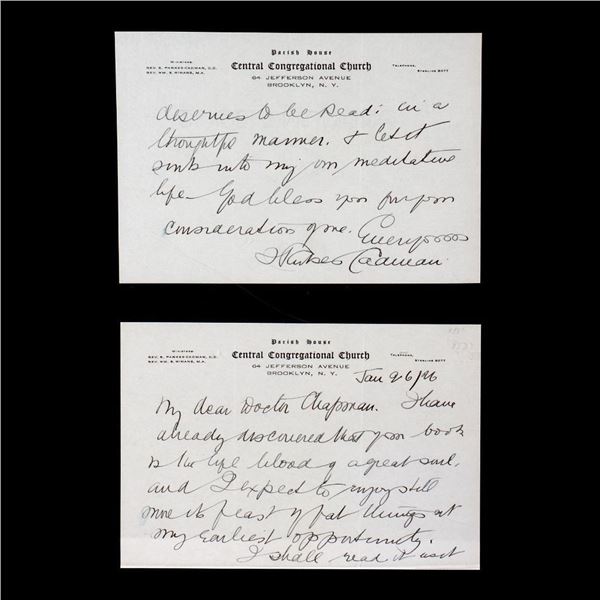 Parish House
Ministers
REV. S. PARKES-CADMAN, D.D.
REV. WM. S. WINANS, M.A.
Central Congregational Church
TELEPHONE,
STERLING 8077
64 JEFFERSON AVENUE
BROOKLYN, N. Y.
deserves to be read: in a
thoughtful manner. & let it
sink into my own meditative
life. God bless you for your
consideration of me. Ever yours
S Parkes Cadman.
Parish House
Ministers
REV. S. PARKES-CADMAN, D.D.
REV. WM. S. WINANS, M.A.
Central Congregational Church
TELEPHONE,
STERLING 8077
64 JEFFERSON AVENUE
BROOKLYN, N. Y.
Jan 26/26
My dear Doctor Chapman. I have
already discovered that your book
is the life blood of a great soul,
and I expect to enjoy still
more its feast of fat things at
my earliest opportunity.
I shall read it as it